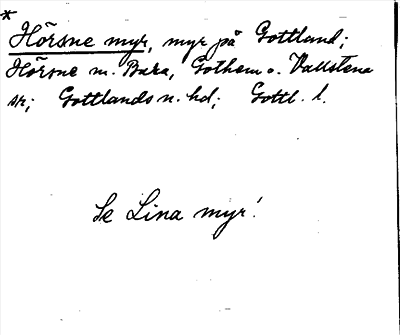 *
Hörsne myr, myr på Gottland;
Hörsne m. Bara, Gothem o. Vallstena
sr; Gottlands n. hd; Gottl. l.
Se Lina myr!